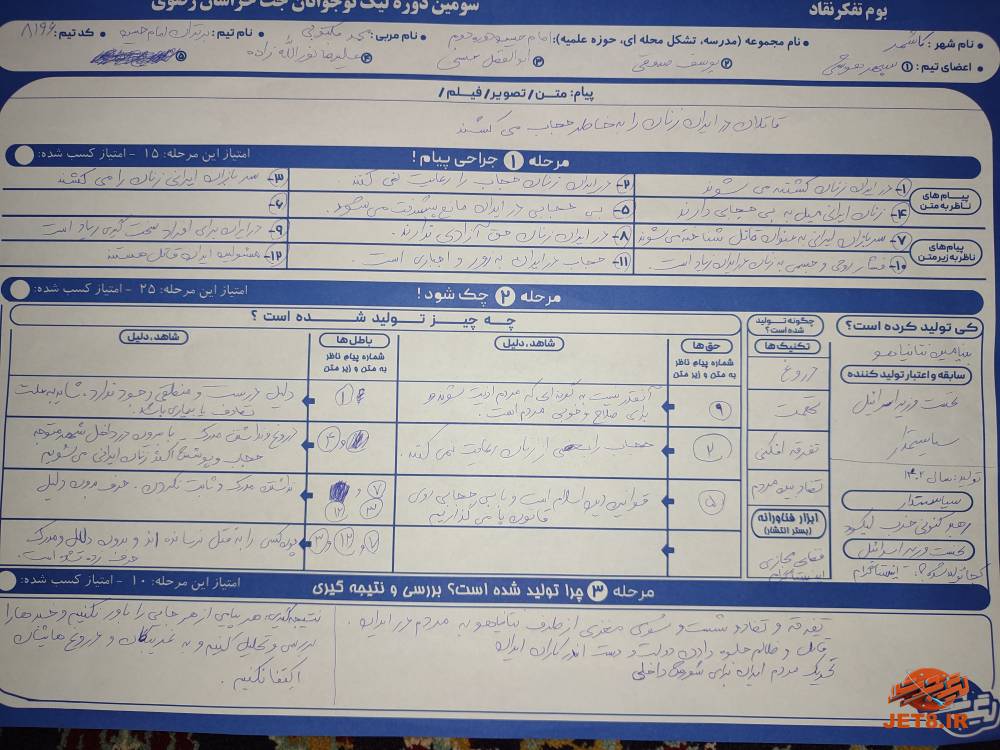 سومین دوره لیگ نوجوانان جت خراسان رضوی
بوم تفکر نقاد
نام شهر: کاشمر
نام مجموعه (مدرسه، تشکل محله ای، حوزه علمیه): امام حسین
نام مربی:
نام تیم:
کد تیم: ۸۱۹۶
اعضای تیم: ①
② یوسف
③ ابوالفضل
④ علیرضا نورالله زاده
⑤
پیام: متن / تصویر / فیلم /
قاتلان در ایران زنان را به خاطر حجاب می کشند
مرحله ۱ جراحی پیام!
امتیاز این مرحله: ۱۵ - امتیاز کسب شده:
پیام های ناظر به متن
۱- در ایران زنان کشته می شوند
۲- در ایران زنان حجاب را رعایت نمی کنند.
۳- سربازان ایرانی زنان را می کشند
۴- زنان ایرانی میل به بی حجابی دارند
۵- بی حجابی در ایران مانع پیشرفت می شود.
۶-
پیام های ناظر به زیر متن
۷- سربازان ایرانی به عنوان قاتل شناخته می شوند
۸- در ایران زنان حق آزادی ندارند.
۹- در ایران برای افراد سخت گیری زیاد است
۱۰- فشار روحی و جسمی به زنان در ایران زیاد است.
۱۱- حجاب در ایران به زور و اجباری است.
۱۲- مسئولین ایران قاتل هستند
مرحله ۲ چک شود!
امتیاز این مرحله: ۲۵ - امتیاز کسب شده:
کی تولید کرده است؟
بنیامین نتانیاهو
سابقه و اعتبار تولید کننده
نخست وزیر اسرائیل
سیاستمدار
تولید: سال ۱۴۰۲
سیاستمدار
رهبر کنونی حزب لیکود
نخست وزیر اسرائیل
کجا تولید شده؟: اینستاگرام
چگونه تولید شده است؟
تکنیک ها
دروغ
تهمت
تفرقه افکنی
تضاد بین مردم
ابزار فناورانه (بستر انتشار)
فضای مجازی
اینستاگرام
چه چیز تولید شده است ؟
حق ها
شماره پیام ناظر به متن و زیر متن
شاهد، دلیل
باطل ها
شماره پیام ناظر به متن و زیر متن
شاهد، دلیل
۹
آنقدر نیست به گونه ای که مردم اذیت شوند و
برای صلاح و خوبی مردم است.
۱
دلیل درست و منطقی وجود ندارد. شاید به علت
تصادف یا بیماری باشد.
۲
حجاب را بعضی از زنان رعایت نمی کنند.
و ۴
دروغ و نداشتن مدرک - با بیرون در داخل شهر متوجه
حجاب و پوشش اکثر زنان ایرانی می شویم
۵
قوانین دین اسلام است و با بی حجابی روی
قانون پا می گذاریم
۷ و
۳ ۱۲
نداشتن مدرک و ثابت نکردن. حرف بدون دلیل
۷ و ۱۲ و ۳
چون کسی را به قتل نرسانده اند و بدون دلیل و مدرک
حرف زده شده است.
مرحله ۳ چرا تولید شده است؟ بررسی و نتیجه گیری
امتیاز این مرحله: ۱۰ - امتیاز کسب شده:
تفرقه و تضاد و شست و شوی مغزی از طرف نتانیاهو به مردم در ایران.
قاتل و ظالم جلوه دادن دولت و دست اندرکاران ایران
تحریک مردم ایران برای شورش داخلی
نتیجه گیری: هر پیامی از هر جایی را باور نکنیم و خبرها را
بررسی و تحلیل کنیم و به غریبگان و دروغ هایشان
اکتفا نکنیم.
JET8.IR